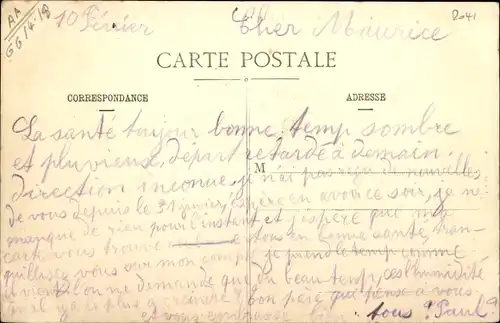 AA
GG14-18
10 Février Cher Maurice 2041
CARTE POSTALE
CORRESPONDANCE ADRESSE
La santé toujour bonne, temp sombre
et pluvieux, départ retardé à demain.
M
direction inconue, je n'ai pas reçu de nouvelles
de vous depuis le 31 janvier, espère en avoir ce soir, je ne
manque de rien pour l'instant et j'espère que ma
carte vous trouve tous en bonne santé,
vous sur mon compte je prend le temp comme
il vient, on ne demande que du beau temp, l'humidité
plus bon père qui pense à vous
et vous embrasse tous Paul